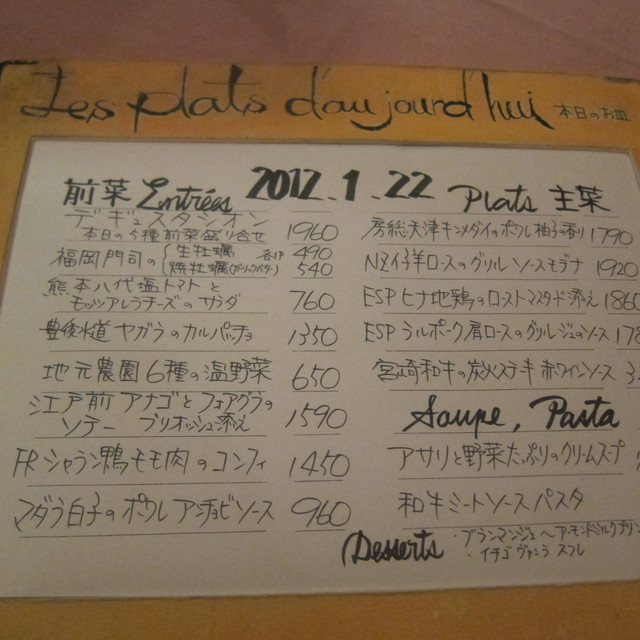 Les plats d'aujourd'hui 本日のお皿
2012.1.22
前菜 Entrées
デギュスタシオン
本日の5種前菜盛り合せ 1960
福岡門司の 生牡蠣 各1P 490
焼牡蠣(ガーリックバター) 540
熊本八代塩トマトと
モッツァレラチーズのサラダ 760
豊後水道 ヤガラのカルパッチョ 1350
地元農園6種の温野菜 650
江戸前アナゴとフォアグラの
ソテー ブリオッシュ添え 1590
FRシャラン鴨モモ肉のコンフィ 1450
マダラ白子のポワレ アンチョビソース 960
Plats 主菜
房総天津キンメダイのポワレ 柚子香り 1790
NZ仔羊ロースのグリル ソースモデナ 1920
ESPヒナ地鶏のロースト マスタード添え 1860
ESPラルポーク肩ロースのグリル ジュのソース
宮崎和牛の炭火ステーキ 赤ワインソース
Soupe, Pasta
アサリと野菜たっぷりのクリームスープ
和牛ミートソースパスタ
Desserts ・ブランマンジェ〜アーモンドミルクプリン
・イチゴ ヴァニラ スフレ